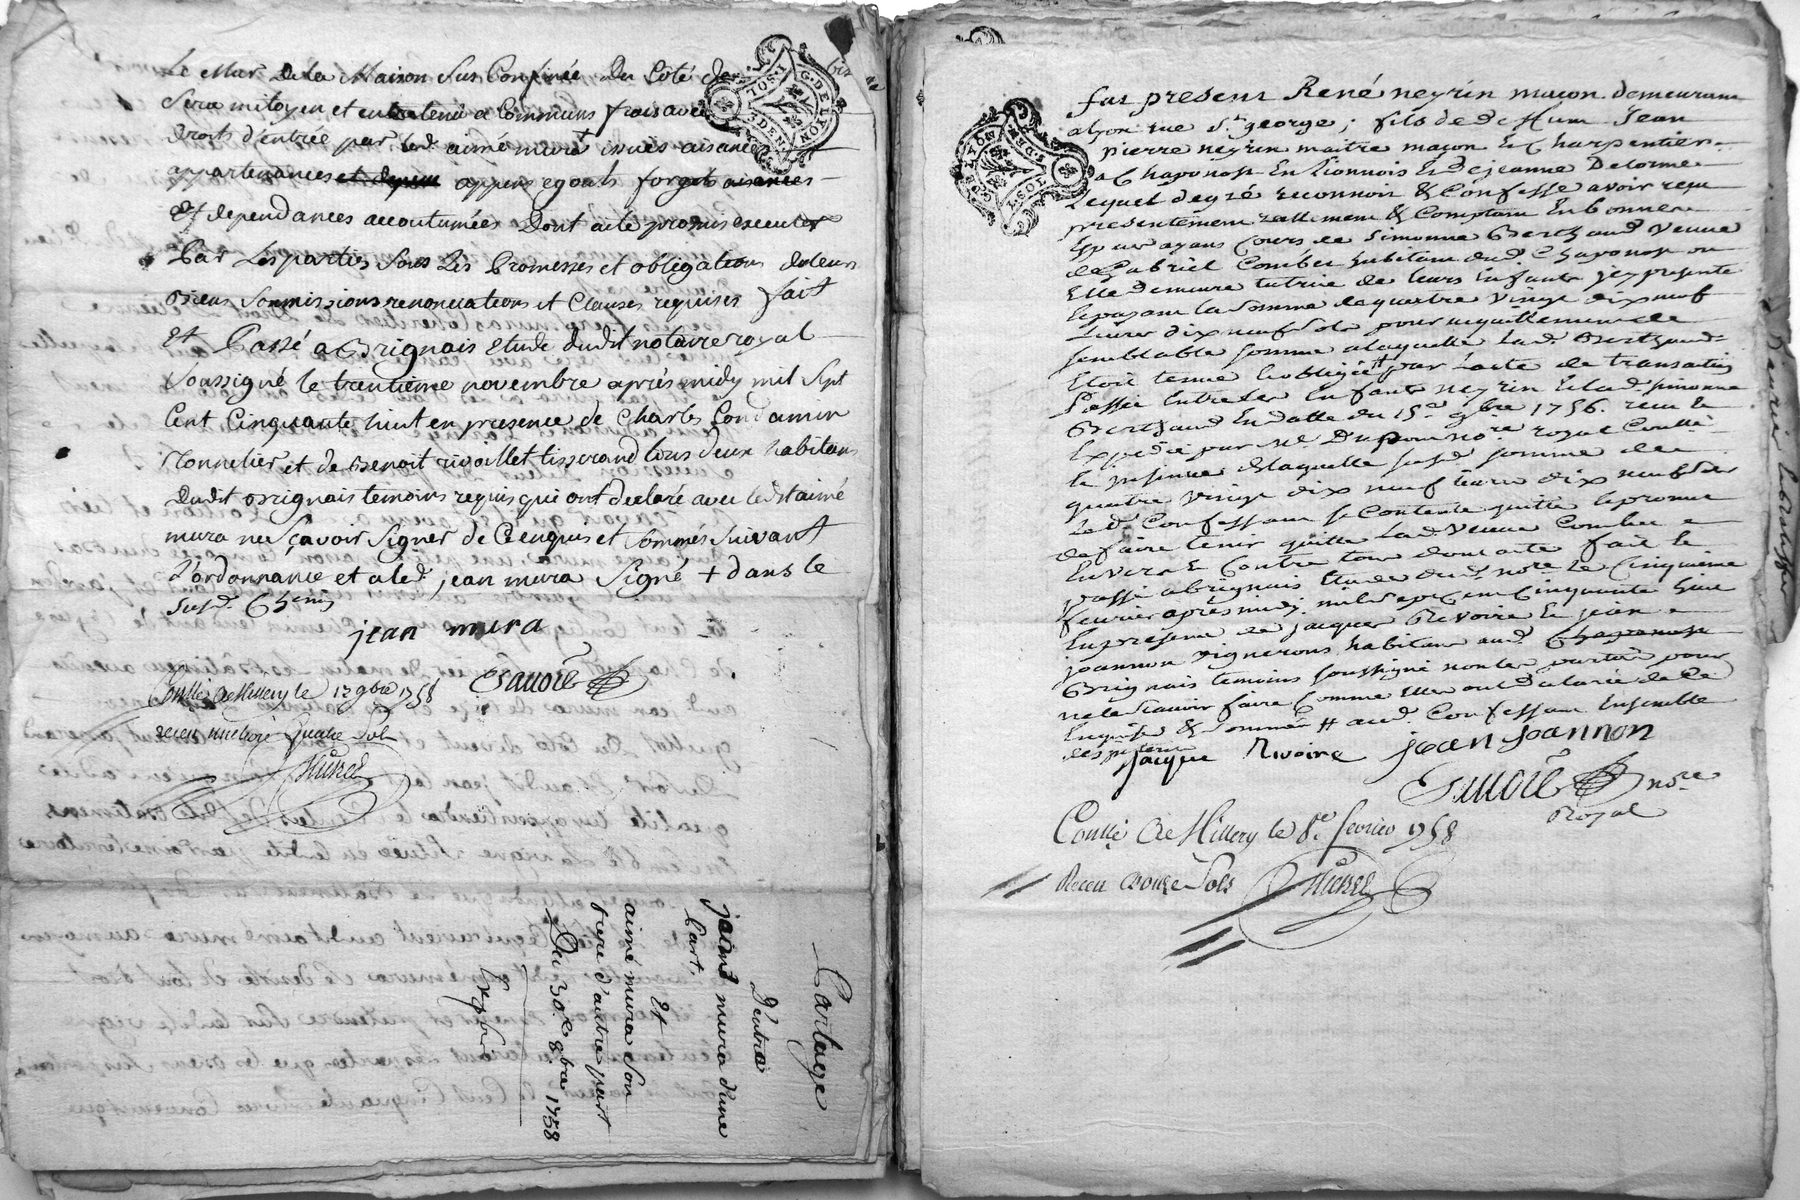 Le Mur de la Maison sus Confinée du Coté de
Sera mitoyen et entretenu a Communs frais avec
droits d'entrée par led. aimé mura + issues aisances
appartenances et depen appens egoats forgets aisances
Et dependances accoutumées Dont acte promis executer
Par Les parties sous Les Promesses et obligations de leurs
Biens Soumissions renonciations et Clauses requises fait
Et Passé a Brignais etude dudit notaire royal
Soussigné le trentieme novembre après midy mil Sept
Cent Cinquante huit en presence de Charles Condamin
Tonnelier et de Benoit rivoillet tisserand tous deux habitans
dudit Brignais temoins requis qui ont declaré avec ledit aimé
mura ne sçavoir Signer de Ce enquis et sommés suivant
L'ordonnance et a led. jean mura Signé + dans le
susd. Chemin
jean mura
Contllé a Millery le 9bre 1758
receu quatre Sols
I·SOL
G·DE LYON
Partage
D'entre
jean mura d'une
Part.
Et
aimé mura son
frere d'autre part
Du 30e 8bre 1758
Exp
fut present René neyrin maçon demeurant
a lyon rue St. george, fils de deffunt Jean
pierre neyrin maitre maçon & Charpentier
a Chaponost En Lionnois & de jeanne Delorme
Lequel de gré reconnoit & Confesse avoir reçu
presentement reellement & Comptant En bonnes
Especes ayant Cours de Simonne Berthaud veuve
de Gabriel Combet habitant dud. Chaponost ou
Elle demeure tutrice de leurs Enfants jcy presente
Lepayant La somme de quatre vingt dix neuf
Livres dix neuf sols pour acquittement de
semblable somme a laquelle Lad. Berthaud
Etoit tenue & obligée par L'acte de transaction
Passée Entre les Enfants neyrin & lad. simonne
Berthaud En datte du 15e 9bre 1756. reçu &
Expedié par Me. Dupon nore. royal Contllé
& jnsinué de laquelle susd. somme de
quatre vingt dix neuf livres dix neuf sols
Led. Confessant se Contente quitte & promet
de faire tenir quitte Lad. veuve Combet
Envers & Contre tous dont acte fait &
passé a brignais Etude dud. nore. Le Cinquieme
fevrier après midy mil sept cent Cinquante huit
En presence de jacques Rivoire & jean
joannon vignerons habitans aud. Chaponost
Brignais temoins soussignés non les parties pour
ne le scavoir faire Comme Elles ont declaré de Ce
Enquises & sommées # aud. Confessant Ensemble
jacque Rivoire jean joannon
nore
Royal
Contllé a Millery le 8e fevrier 1758
Receu douze Sols